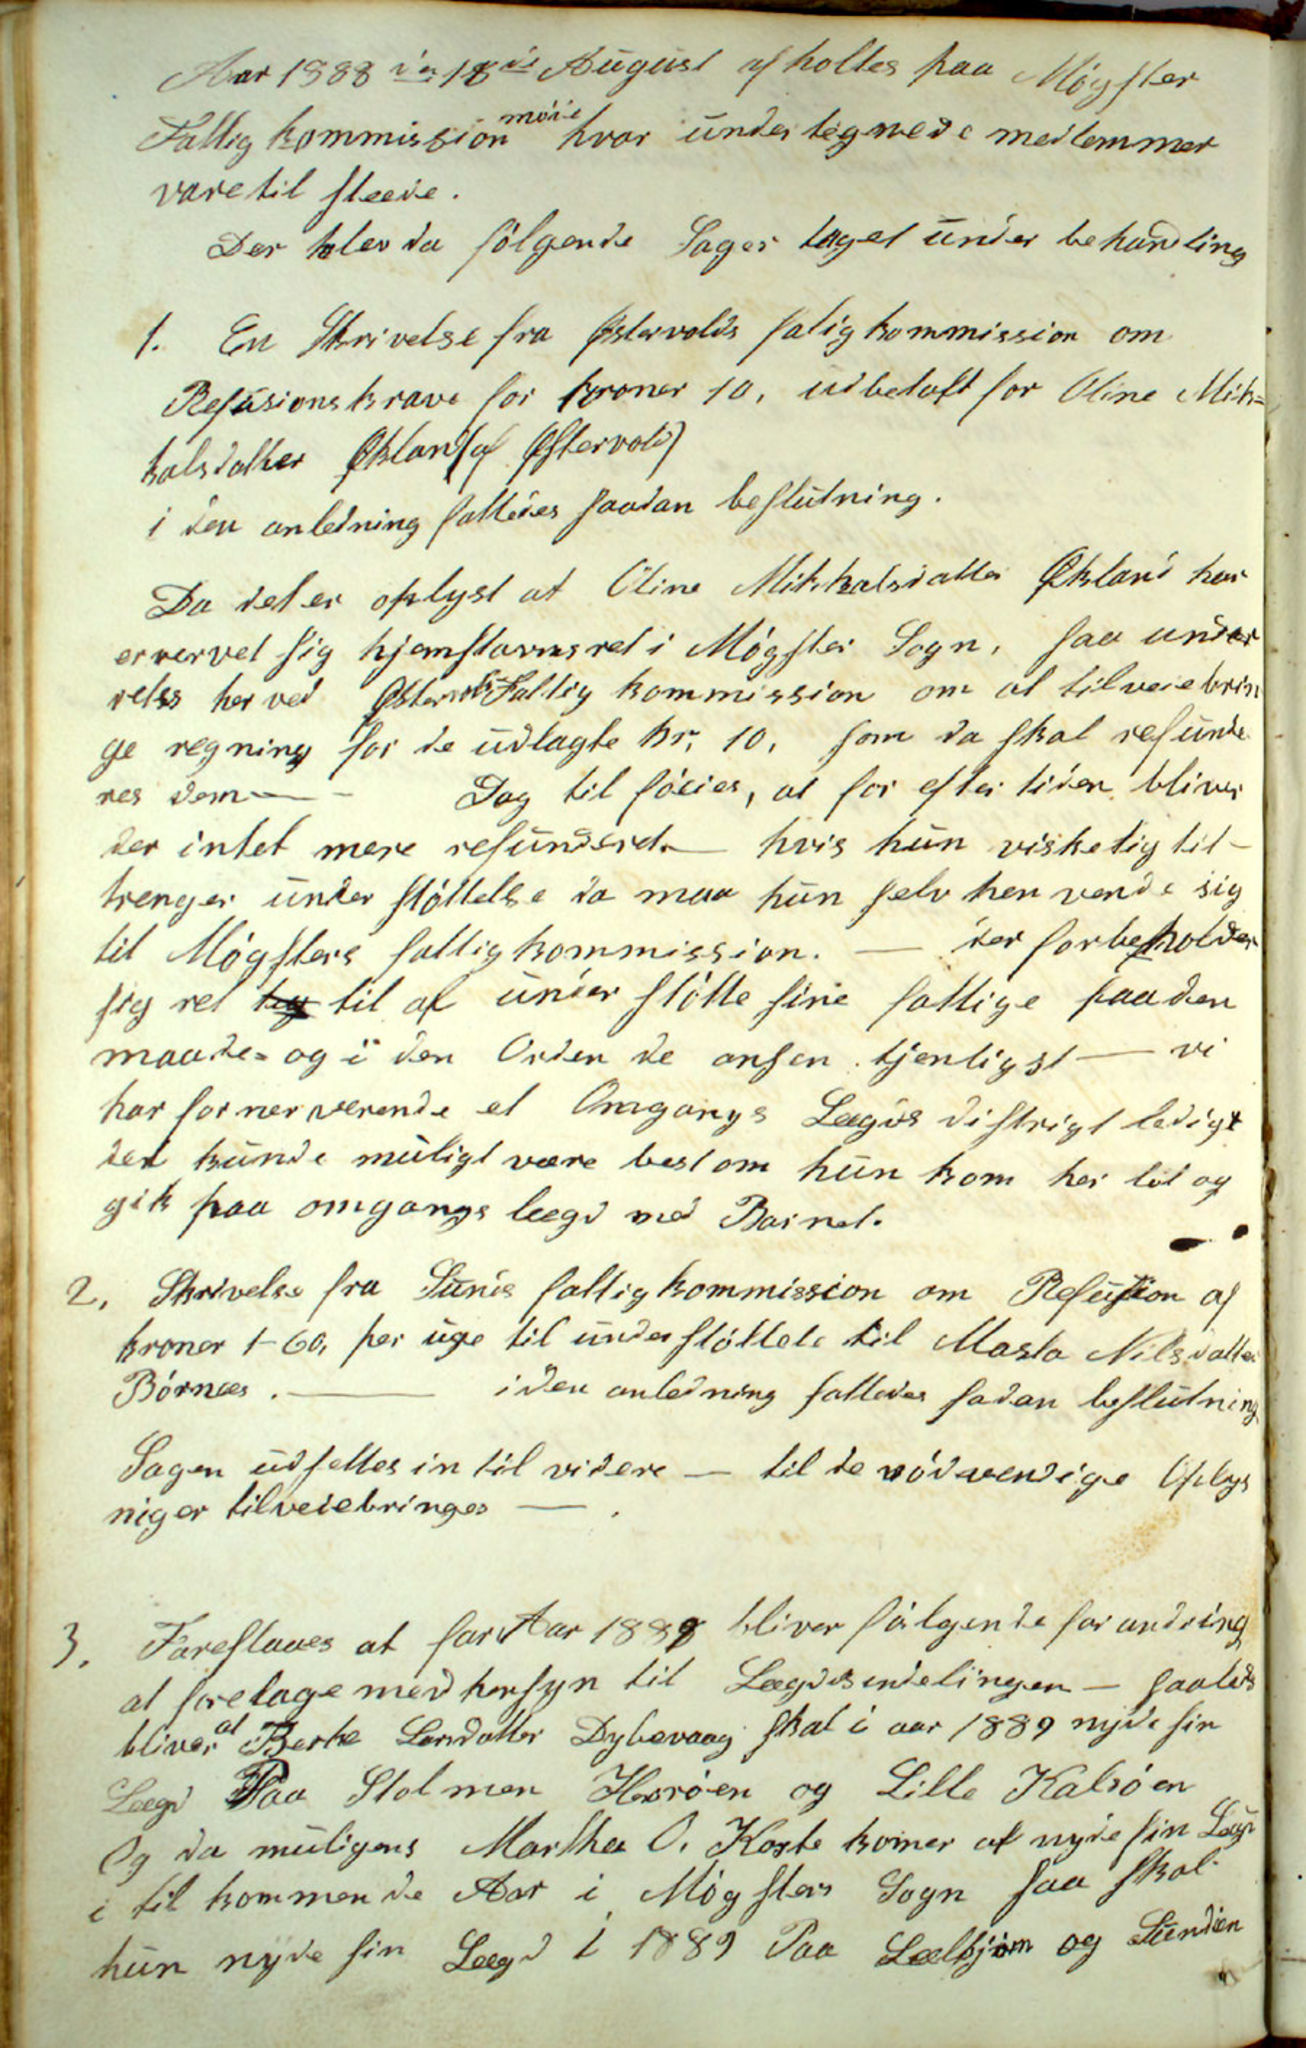 Aar 1888 den 18de August afholtes paa Møgster
Fattigkommission møde hvor undertegnede medlemmer
vare til stæde.
Der blev da følgende Sager taget under behandling
1. En Skrivelse fra Østervolds fatigkommission om
Refusionskrave for kroner 10, udbetalt for Oline Mik=
kalsdatter Økland (af Østervold)
i den anledning fattedes saadan beslutning.
Da det er oplyst at Oline Mikkalsdatter Økland har
erværvet sig hjemstavnsret i Møgster Sogn, saa under
retes herved Østervolds Fattigkommission om at tilveiebrin
ge regning for de udlagte kr. 10, som da skal refunde
res dem — Dog tilføies, at for eftertiden bliver
der intet mere refunderet. — hvis hun viskelig til-
trenger understøttelse da maa hun selv henvende sig
til Møgsters fattigkommission. — der forbeholder
sig ret til at understøtte sine fattige paa den
maade= og i den Orden de ansen tjenligst — vi
har for nerværende et Omgangs Lægds distrigt ledigt
det kunde muligt være best om hun kom her til og
gik paa omgangs lægd med Barnet.
2. Skrivelse fra Sunds fattigkommission om Refusion af
kroner 1-60, per uge til understøttele til Marta Nilsdatter
Børnæs. — i den anledning fattedes sadan beslutning
Sagen udsettes in til videre — til de nødvendige Oplys
niger tilveiebringes — .
3. Foreslaaes at for Aar 1889 bliver følgende forandring
at foretage med hensyn til Lægdsindelingen — saaledes
bliver at Berte Larsdatter Dybevaag skal i aar 1889 nyde sin
Lægd Paa Stolmen Horrøen og Lille Kalsøen
Og da muligens Martha O. Korte komer at nyde sin Lægd
i tilkommende Aar i Møgsters Sogn saa skal
hun nyde sin Lægd i 1889 Paa Selbjørn og Lunden